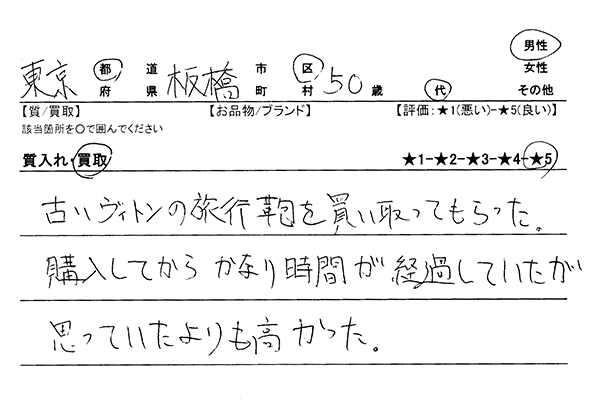 東京 都 道 府 県 板橋 市 区 町 村 50 歳 代 男性 女性 その他
【質/買取】 【お品物/ブランド】 【評価:★1(悪い)-★5(良い)】
該当箇所を〇で囲んでください
質入れ・買取 ★1-★2-★3-★4-★5
古いヴィトンの旅行鞄を買い取ってもらった。
購入してから かなり時間が 経過していたが
思っていたよりも高かった。